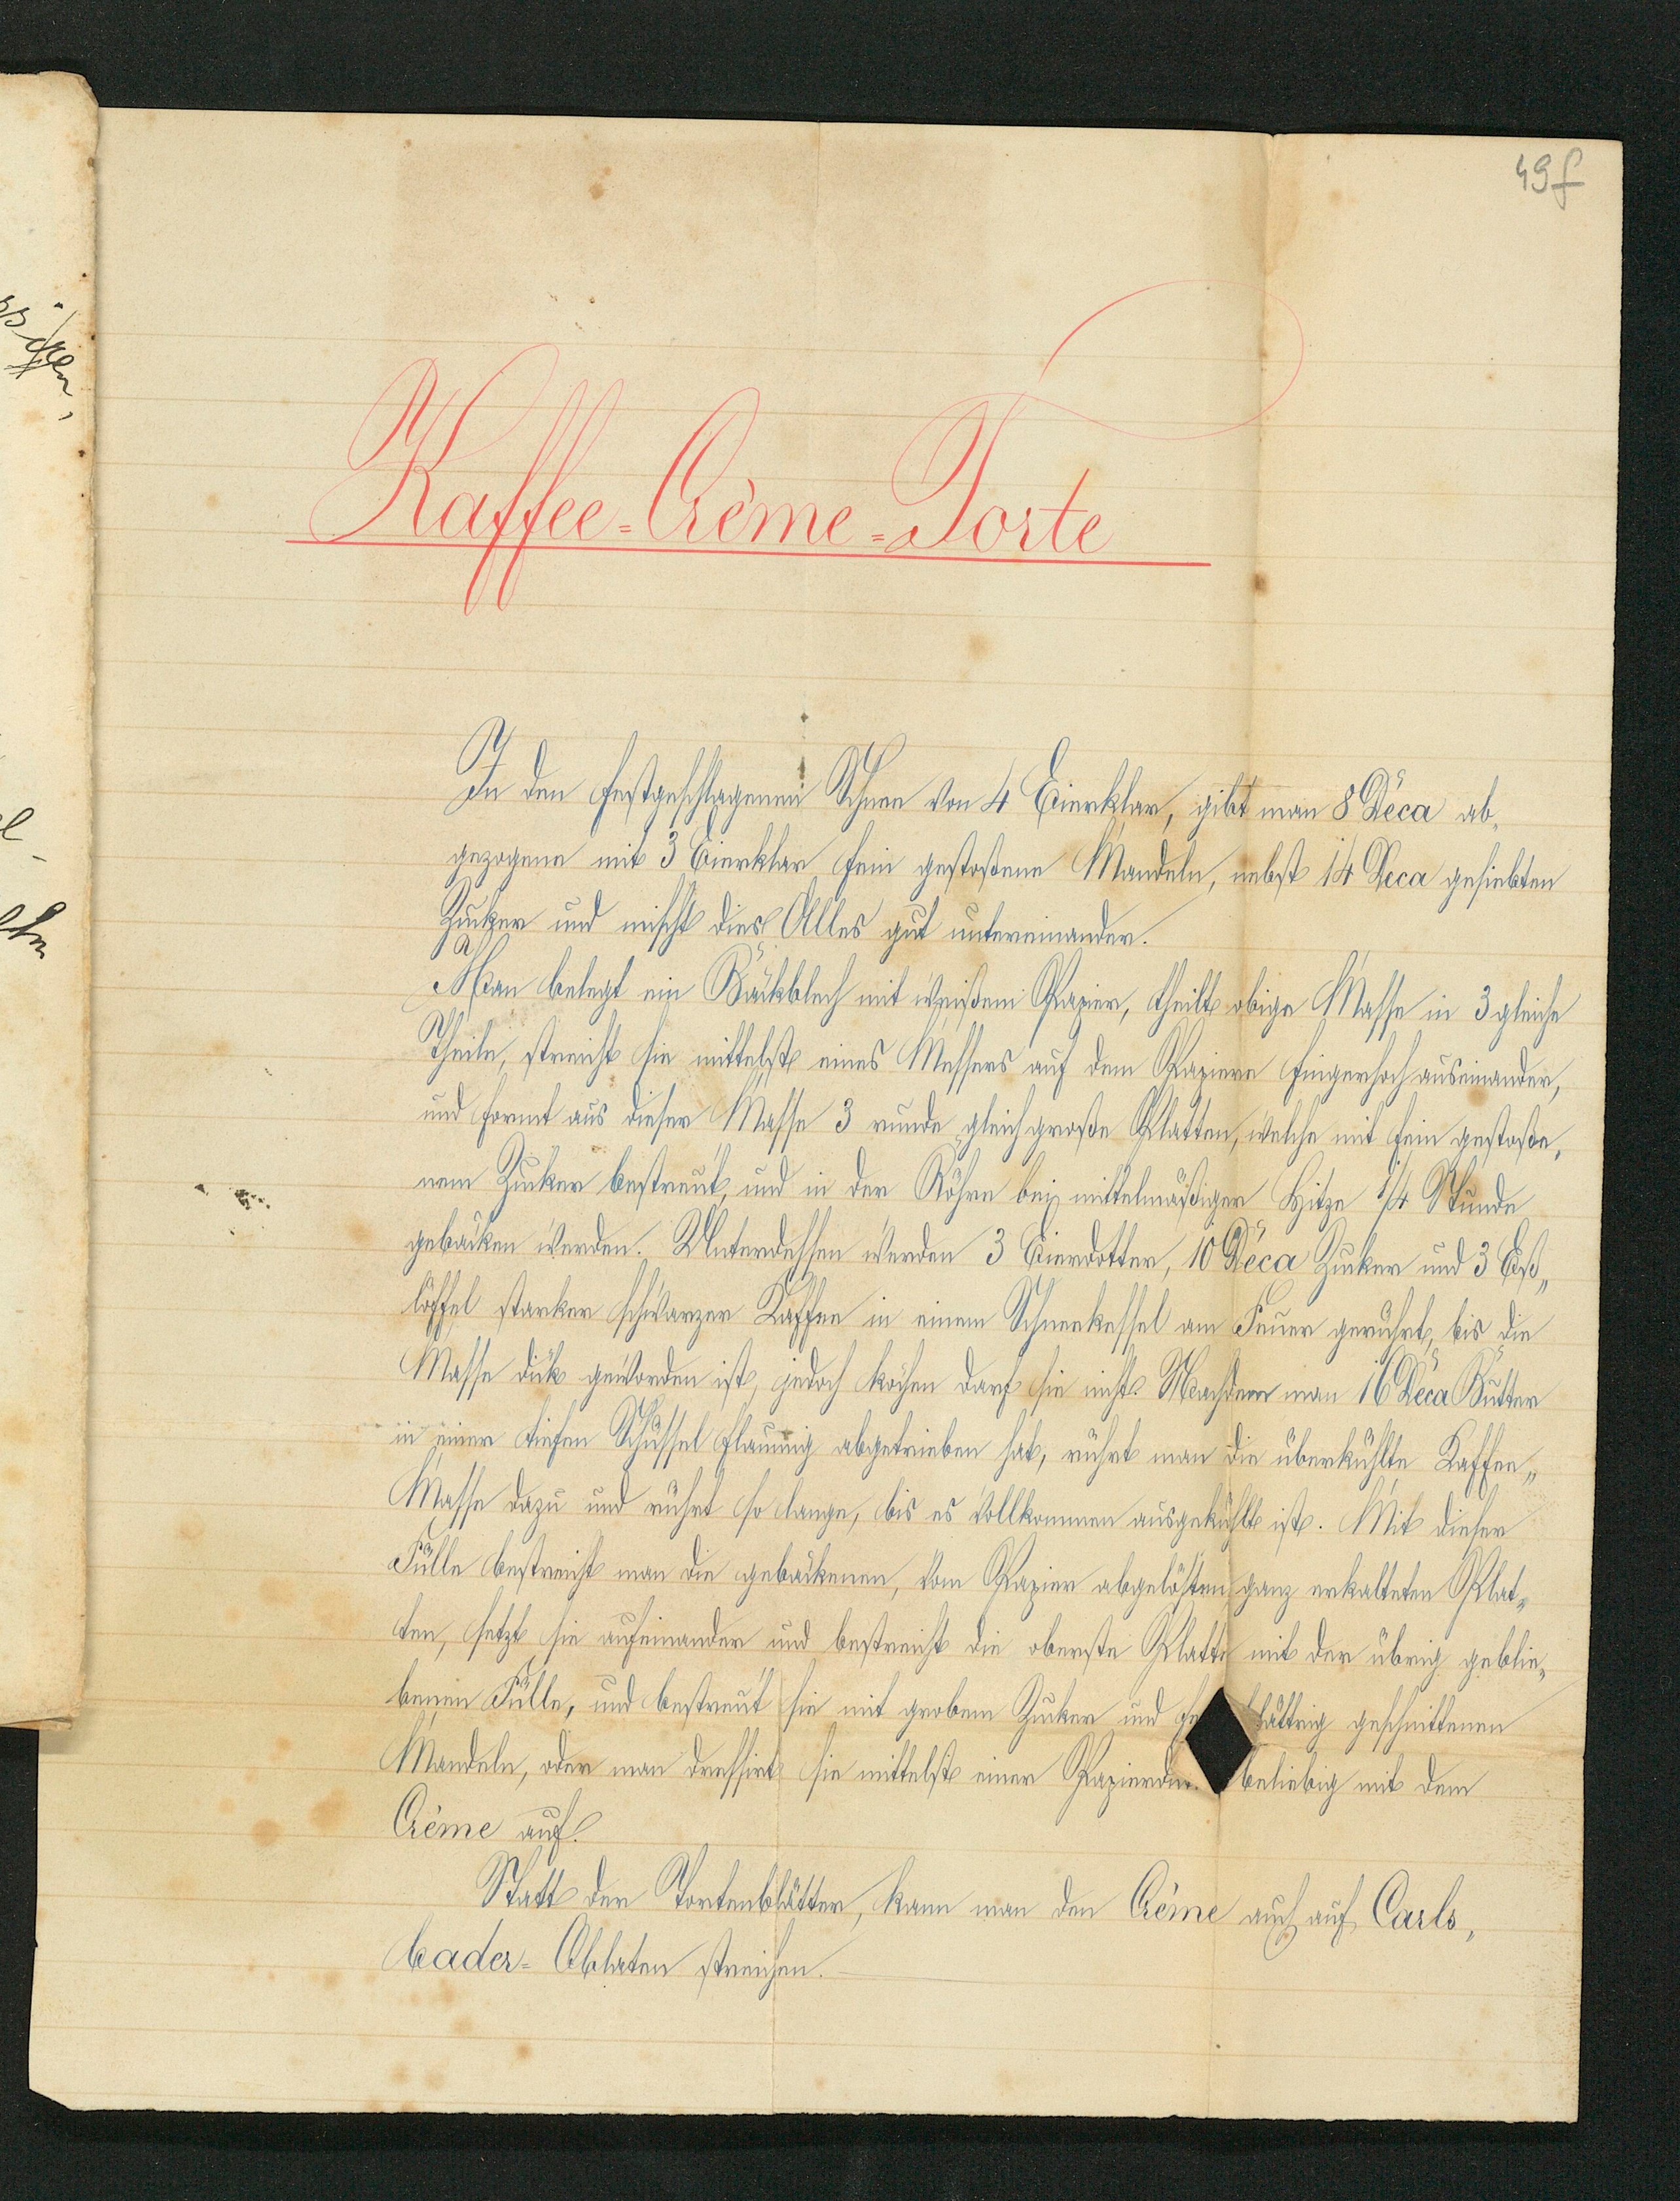 49f
Kaffee=Crème=Torte
In den festgeschlagenen Schnee von 4 Eierklar, gibt man 8 Deca ab„
gezogene mit 3 Eierklar fein gestoßene Mandeln, nebst 14 Deca gesiebten
Zucker und mischt dies Alles gut untereinander.
Man belegt ein Backblech mit weißem Papier, theilt obige Masse in 3 gleiche
Theile, streicht sie mittelst eines Messers auf dem Papiere fingerhoch auseinander,
und formt aus dieser Masse 3 runde gleich große Platten, welche mit fein gestoße„
nem Zucker bestreut, und in der Röhre bei mittelmäßiger Hitze 1/4 Stunde
gebacken werden. Unterdessen werden 3 Eierdotter, 10 Deca Zucker und 3 Eß„
löffel starker schwarzer Kaffee in einem Schneekessel am Feuer gerührt, bis die
Masse dick geworden ist, jedoch kochen darf sie nicht. Nachdem man 16 Deca Butter
in einer tiefen Schüssel flaumig abgetrieben hat, rührt man die überkühlte Kaffee„
Masse dazu und rührt so lange, bis es vollkommen ausgekühlt ist. Mit dieser
Fülle bestreicht man die gebackenen, vom Papier abgelösten ganz erkalteten Plat„
ten, setzt sie aufeinander und bestreicht die oberste Platte mit der übrig geblie„
benen Fülle, und bestreut sie mit grobem Zucker und blättrig geschnittenen
Mandeln, oder man dressirt sie mittelst einer beliebig mit dem
Crème auf.
Statt der Tortenblätter, kann man den Crème auch auf Carls„
bader=Oblaten streichen.